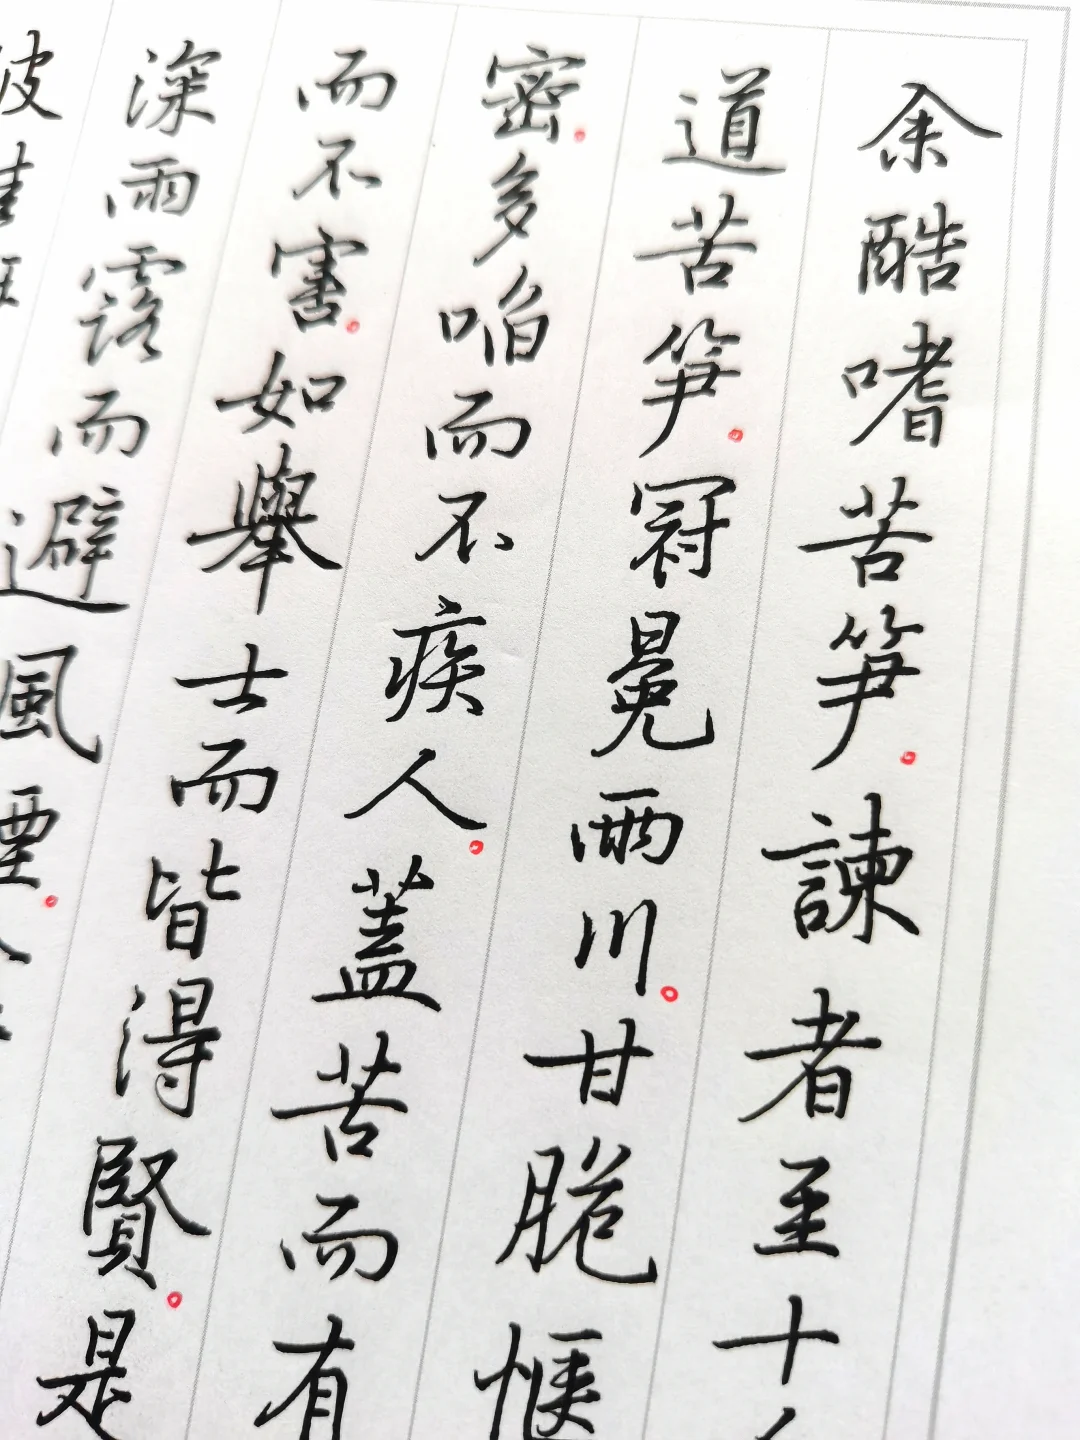 余酷嗜苦笋。諫者至十
道苦笋。冠冕兩川。甘脆愜
密。多啗而不疾人。蓋苦而有
而不害。如舉士而皆得賢。是
深雨露而避風煙。
彼